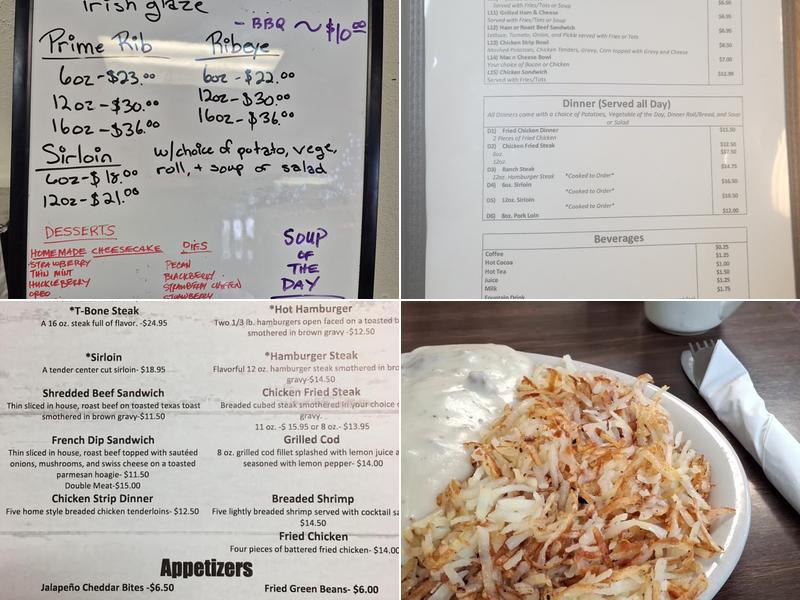 Irish glaze
- BBQ ~ $10.00
Prime Rib
6oz - $23.00
12oz - $30.00
16oz - $36.00
Ribeye
6oz - $22.00
12oz - $30.00
16oz - $36.00
Sirloin
6oz - $18.00
12oz - $21.00
w/choice of potato, vege,
roll, + soup or salad
DESSERTS
HOMEMADE CHEESECAKE
STRAWBERRY
THIN MINT
HUCKLEBERRY
OREO
PIES
PECAN
BLACKBERRY
SOUP
OF
THE
DAY
Served with Fries/Tots or Soup
L11) Grilled Ham & Cheese
Served with Fries/Tots or Soup
L12) Ham or Roast Beef Sandwich $8.95
Lettuce, Tomato, Onion, and Pickle served with Fries or Tots
L13) Chicken Strip Bowl $8.50
Mashed Potatoes, Chicken Tenders, Gravy, Corn topped with Gravy and Cheese
L14) Mac n Cheese Bowl $7.00
Your choice of Bacon or Chicken
L15) Chicken Sandwich $12.99
Served with Fries/Tots
Dinner (Served all Day)
All Dinners come with a choice of Potatoes, Vegetable of the Day, Dinner Roll/Bread, and Soup
or Salad
D1) Fried Chicken Dinner $11.50
2 Pieces of Fried Chicken
D2) Chicken Fried Steak
6oz. $12.50
12oz. $17.50
D3) Ranch Steak $14.75
12oz. Hamburger Steak *Cooked to Order*
D4) 6oz. Sirloin $16.50
*Cooked to Order*
D5) 12oz. Sirloin $19.50
*Cooked to Order*
D6) 8oz. Pork Loin $12.00
Beverages
Coffee $0.25
Hot Cocoa $1.25
Hot Tea $1.00
Juice $1.50
Milk $1.25
Fountain Drink $1.75
*T-Bone Steak
A 16 oz. steak full of flavor. -$24.95
*Sirloin
A tender center cut sirloin- $18.95
Shredded Beef Sandwich
Thin sliced in house, roast beef on toasted texas toast
smothered in brown gravy-$11.50
French Dip Sandwich
Thin sliced in house, roast beef topped with sautéed
onions, mushrooms, and swiss cheese on a toasted
parmesan hoagie- $11.50
Double Meat-$15.00
Chicken Strip Dinner
Five home style breaded chicken tenderloins- $12.50
*Hot Hamburger
Two 1/3 lb. hamburgers open faced on a toasted b
smothered in brown gravy -$12.50
*Hamburger Steak
Flavorful 12 oz. hamburger steak smothered in bro
gravy-$14.50
Chicken Fried Steak
Breaded cubed steak smothered in your choice o
gravy.
11 oz. -$ 15.95 or 8 oz.- $13.95
Grilled Cod
8 oz. grilled cod fillet splashed with lemon juice a
seasoned with lemon pepper- $14.00
Breaded Shrimp
Five lightly breaded shrimp served with cocktail sa
$14.50
Fried Chicken
Four pieces of battered fried chicken- $14.00
Appetizers
Jalapeño Cheddar Bites -$6.50
Fried Green Beans- $6.00